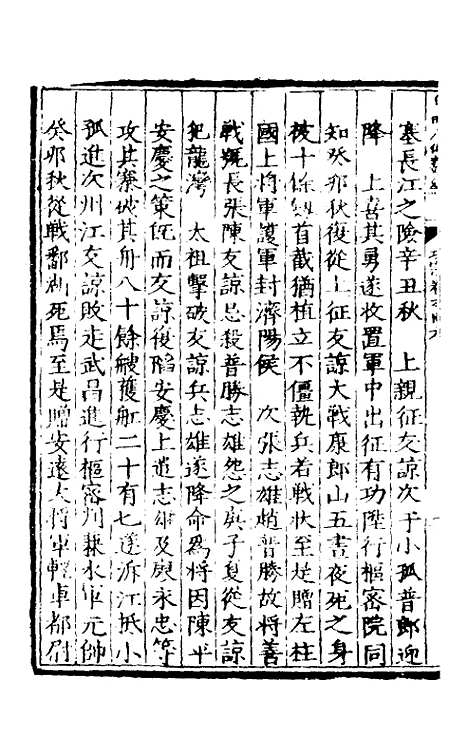 塞長江之險辛丑秋　上親征友諒次于小孤普郎迎
降　上喜其勇遂收置軍中出征有功陞行樞密院同
知癸卯秋復從上征友諒大戰康郎山五晝夜死之身
被十餘創首截猶植立不僵執兵若戰狀至是贈左柱
國上將軍護軍封濟陽侯　次張志雄趙普勝故將善
戰號長張陳友諒忌殺普勝志雄怨之庚子夏從友諒
犯龍灣　太祖擊破友諒兵志雄遂降命為將因陳平
安慶之策既而友諒復陷安慶上遣志雄及廖永忠等
攻其寨破其舟八十餘艘獲舡二十有七遂泝江抵小
孤進次州江友諒敗走武昌進行樞密判兼水軍元帥
癸卯秋從戰鄱湖死焉至是贈安遠大將軍輕車都尉